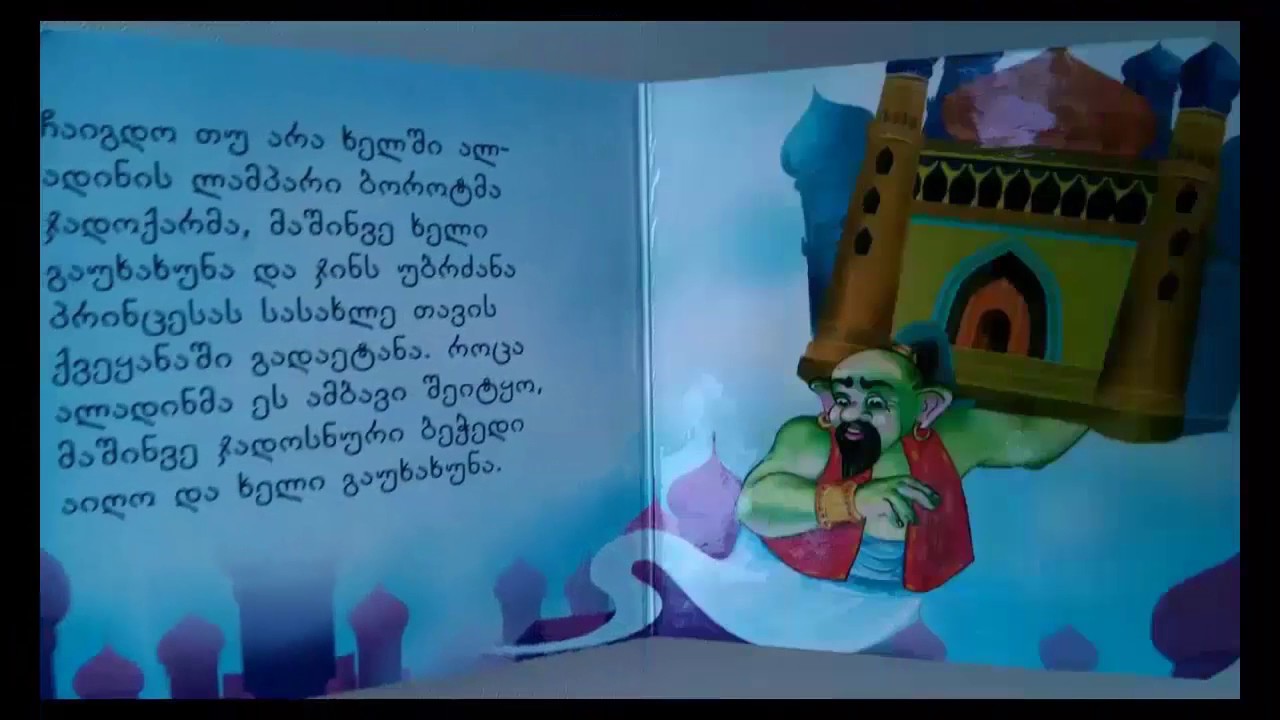 ჩაიგდო თუ არა ხელში ალ-
ადინის ლამპარი ბოროტმა
ჯადოქარმა, მაშინვე ხელი
გაუხახუნა და ჯინს უბრძანა
პრინცესას სასახლე თავის
ქვეყანაში გადაეტანა. როცა
ალადინმა ეს ამბავი შეიტყო,
მაშინვე ჯადოსნური ბეჭედი
აიღო და ხელი გაუხახუნა.